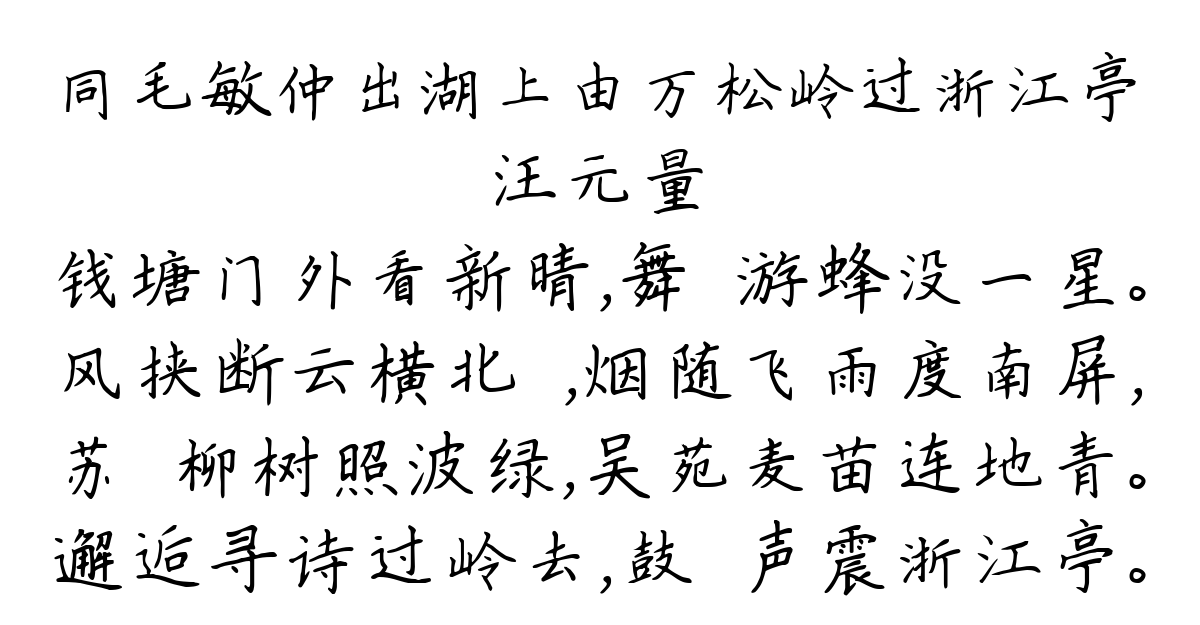 同毛敏仲出湖上由万松岭过浙江亭
汪元量
钱塘门外看新晴,舞 游蜂没一星。
风挟断云横北 ,烟随飞雨度南屏,
苏 柳树照波绿,吴苑麦苗连地青。
邂逅寻诗过岭去,鼓 声震浙江亭。